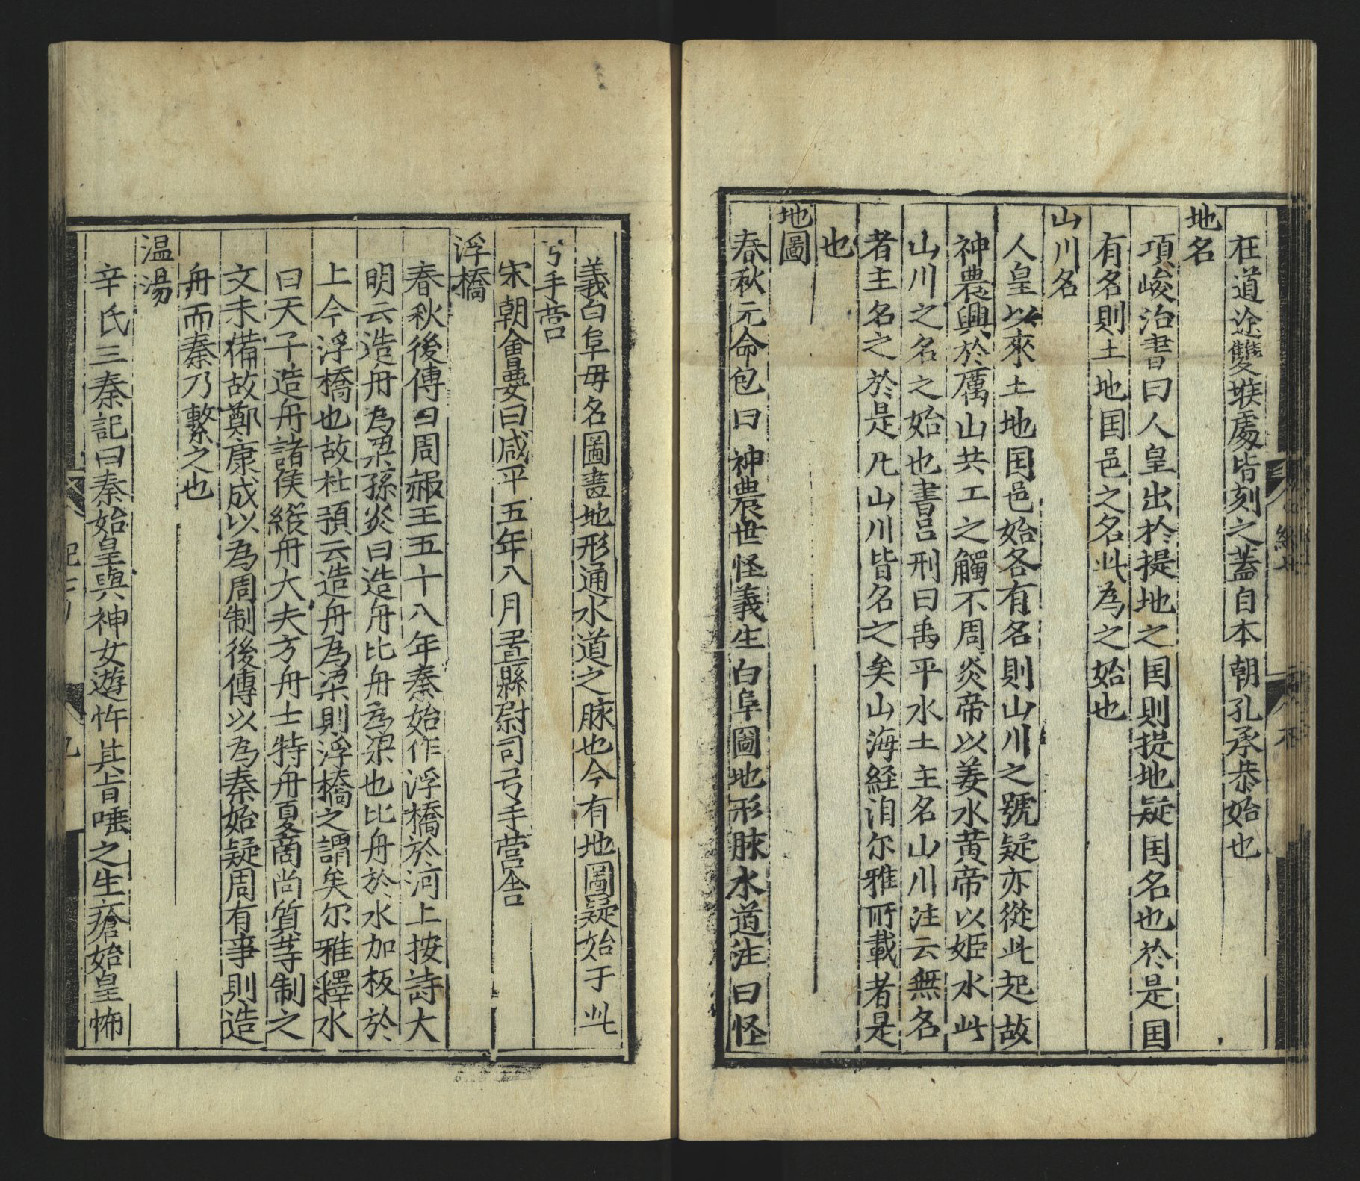 在道途雙堠處皆刻之蓋自本朝孔承恭始也
地名
項峻治書曰人皇出於提地之国則提地疑国名也於是国
有名則土地国邑之名此為之始也
山川名
人皇以來土地国邑始各有名則山川之號疑亦從此起故
神農興於厲山共工之觸不周炎帝以姜水黄帝以姬水此
山川之名之始也書吕刑曰禹平水土主名山川注云無名
者主名之於是凡山川皆名之矣山海経洎尔雅所載者是
也
地圖
春秋元命包曰神農世怪義生白阜圖地形脉水道注曰怪
義白阜母名圖畫地形通水道之脉也今有地圖疑始于此
弓手营
宋朝會要曰咸平五年八月置縣尉司弓手营舍
浮橋
春秋後傳曰周赧王五十八年秦始作浮橋於河上按詩大
明云造舟為梁孫炎曰造舟比舟為梁也比舟於水加板於
上今浮橋也故杜預云造舟為梁則浮橋之謂矣尔雅釋水
曰天子造舟諸侯維舟大夫方舟士特舟夏商尚質等制之
文未備故鄭康成以為周制後傳以為秦始疑周有事則造
舟而秦乃繫之也
温湯
辛氏三秦記曰秦始皇與神女遊忤其旨唾之生瘡始皇怖